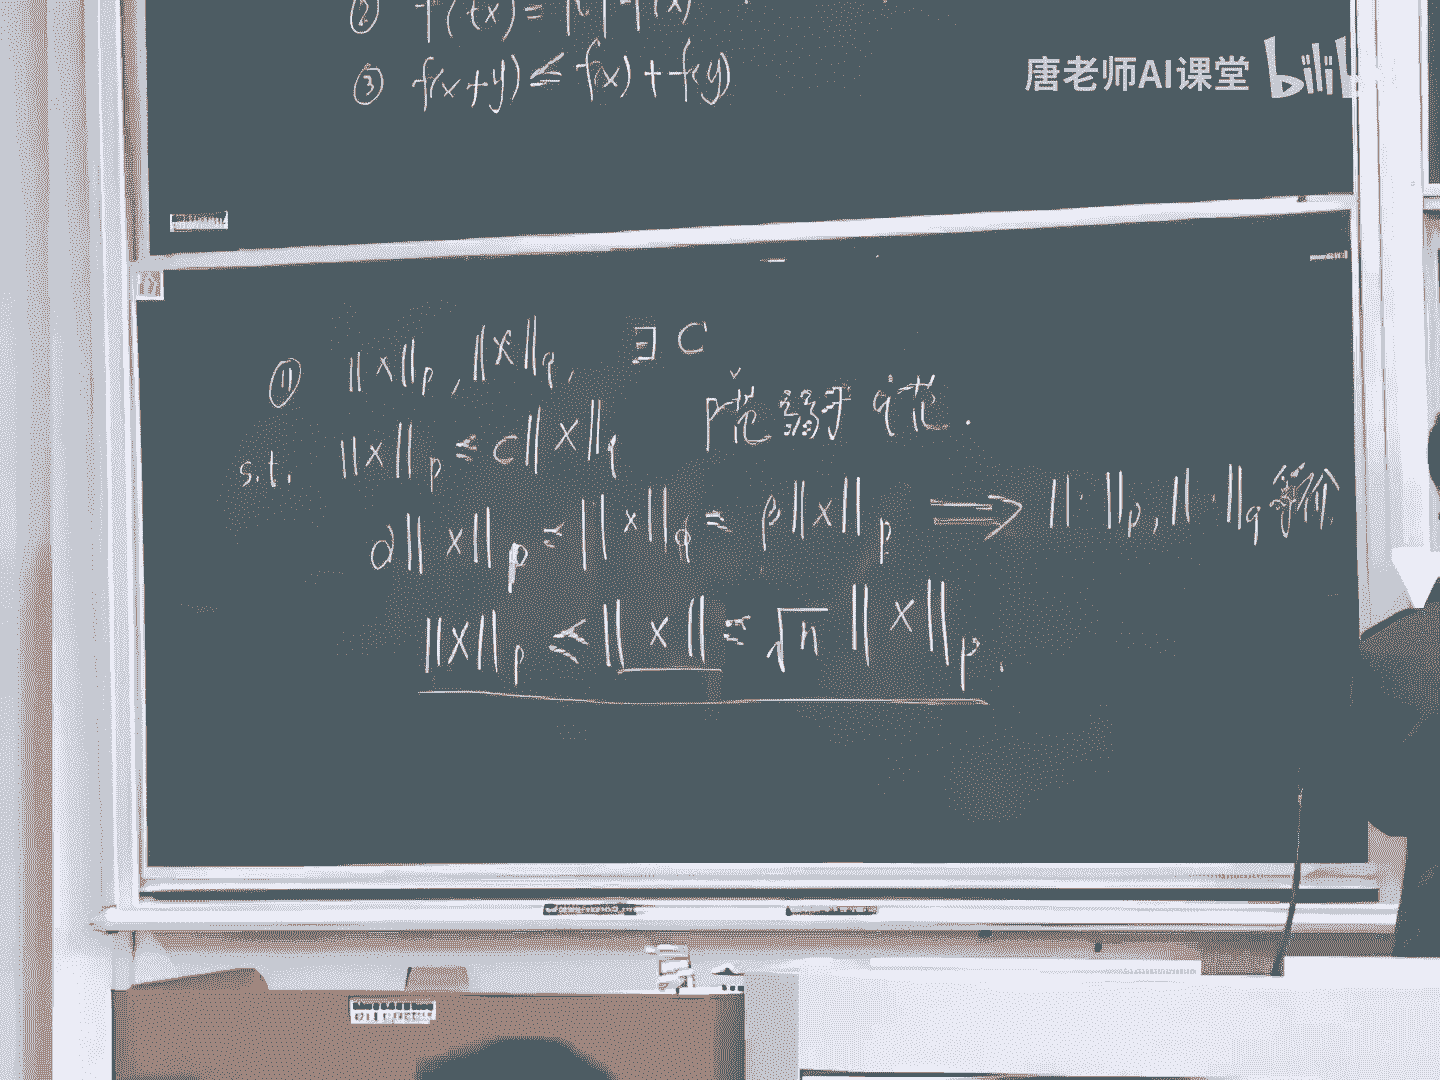 ② f(tx) = |t| f(x)
③ f(x+y) ≤ f(x) + f(y)
唐老师AI课堂 bilib
① ||x||p , ||x||q , ∃ C
s.t. ||x||p ≤ C||x||q p范弱于q范.
α||x||p ≤ ||x||q ≤ β||x||p ⟹ ||·||p, ||·||q 等价.
||x||p ≤ ||x|| ≤ √n ||x||p.